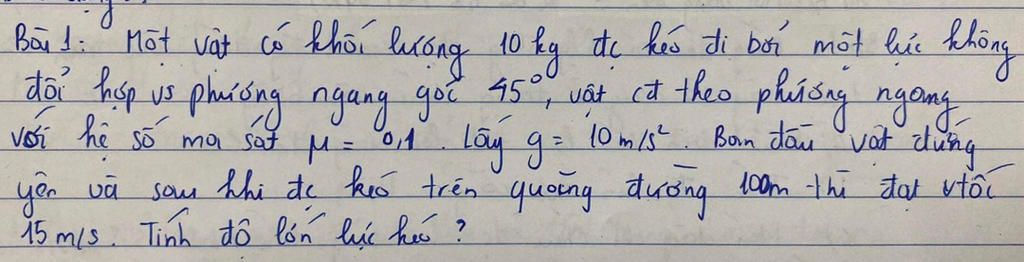 Bài 1: Một vật có khối lượng 10 kg đc kéo đi bởi một lực không
đổi hợp vs phương ngang góc 45°, vật cđ theo phương ngang
với hệ số ma sát μ = 0,1. Lấy g = 10 m/s². Ban đầu vật đứng
yên và sau khi đc kéo trên quãng đường 100m thì đạt vtốc
15 m/s. Tính độ lớn lực kéo?